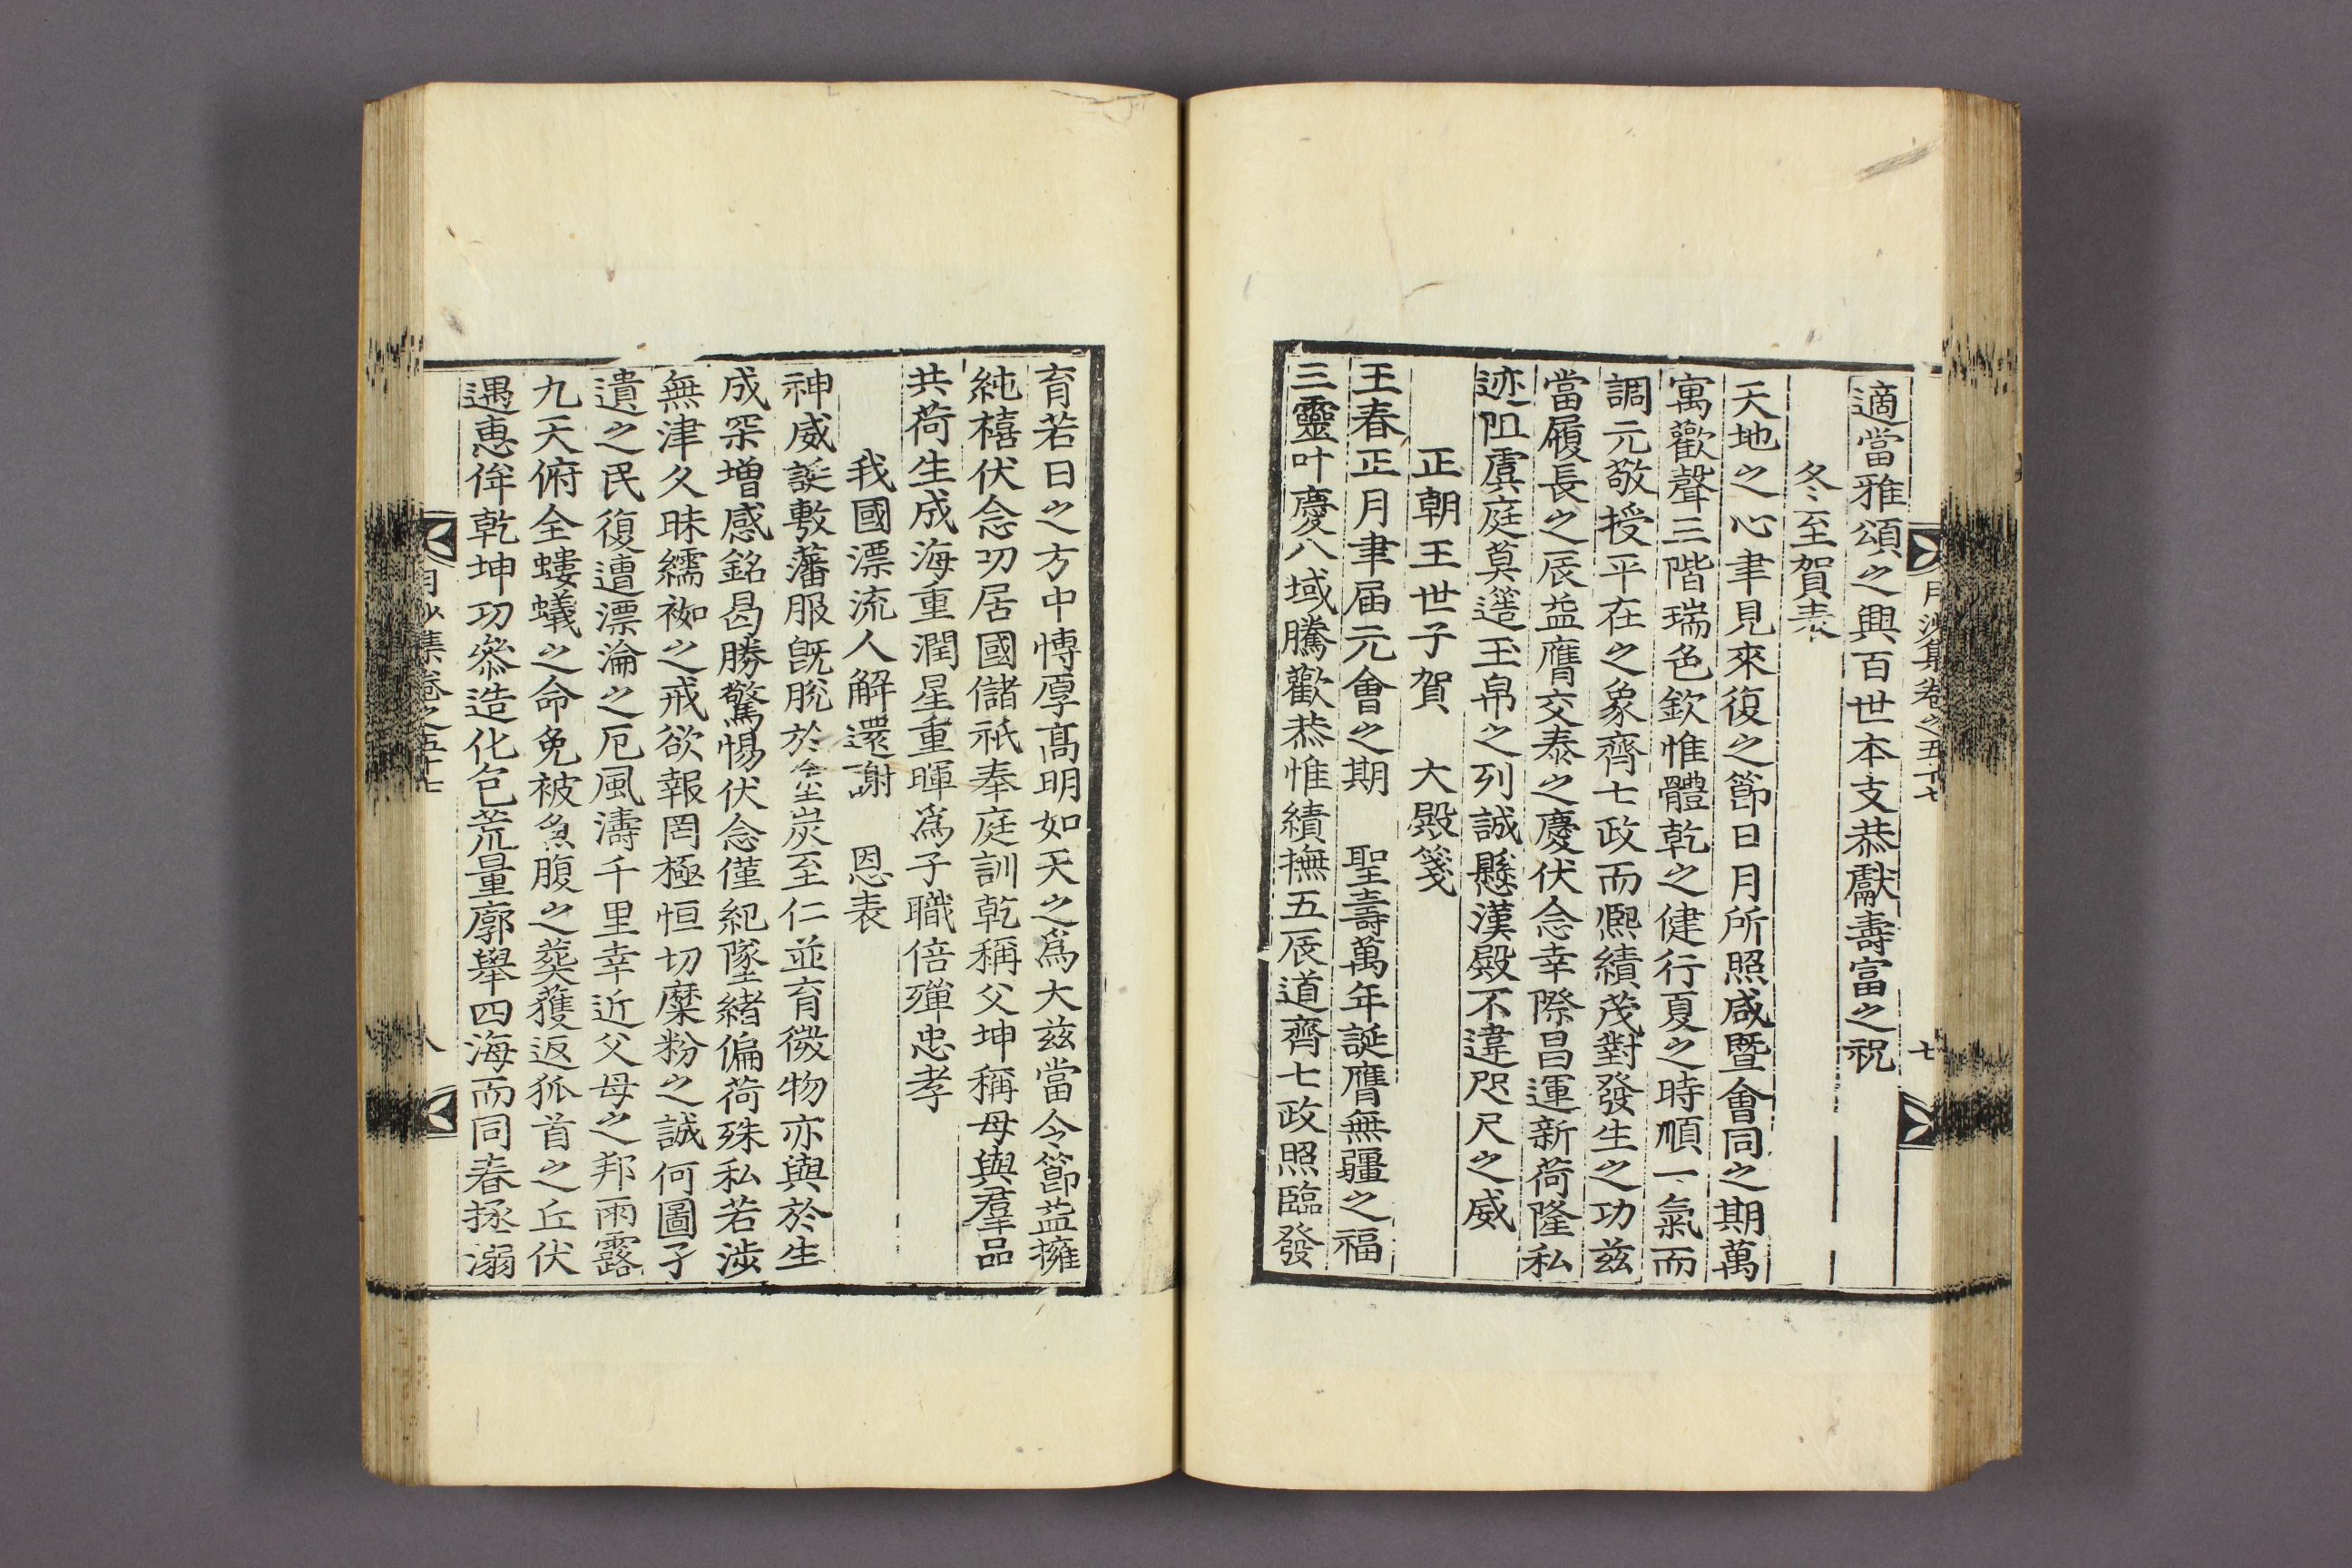 月沙集卷之五十七
七
適當雅頌之興百世本支恭獻壽富之祝
冬至賀表
天地之心聿見來復之節日月所照咸曁會同之期萬
寓歡聲三階瑞色欽惟體乾之健行夏之時順一氣而
調元敬授平在之象齊七政而凞績茂對發生之功兹
當履長之辰益膺交泰之慶伏念幸際昌運新荷隆私
迹阻虞庭莫簉玉帛之列誠懸漢殿不違咫尺之威
正朝王世子賀 大殿箋
王春正月聿届元會之期 聖壽萬年誕膺無疆之福
三靈叶慶八域騰歡恭惟績撫五辰道齊七政照臨發
育若日之方中愽厚髙明如天之爲大兹當令節益擁
純禧伏念叨居國儲祇奉庭訓乾稱父坤稱母與羣品
共荷生成海重潤星重暉爲子職倍殫忠孝
我國漂流人解還謝 恩表
神威誕敷藩服旣脫於塗炭至仁並育微物亦與於生
成罙增感銘曷勝驚惕伏念僅紀墜緖偏荷殊私若涉
無津久昧繻袽之戒欲報罔極恒切糜粉之誠何圖孑
遺之民復遭漂淪之厄風濤千里幸近父母之邦雨露
九天俯全螻蟻之命免被魚腹之葬獲返狐首之丘伏
遇惠侔乾坤功參造化包荒量廓舉四海而同春拯溺
月沙集卷之五十七
八